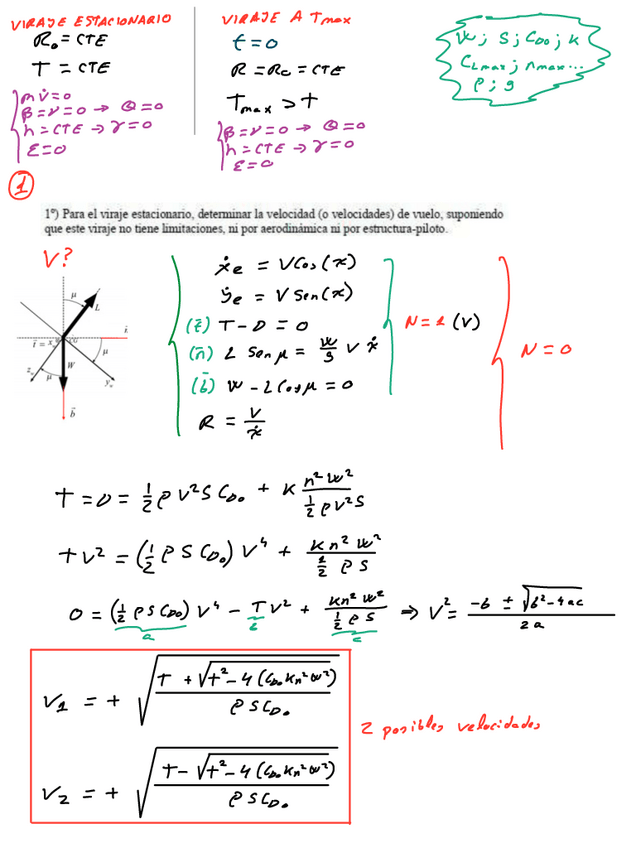 VIRAJE ESTACIONARIO
R₀ = CTE
T = CTE
m V̇ = 0
β = ν = 0 → Q = 0
h = CTE → γ = 0
ε = 0
VIRAJE A Tmax
t = 0
R = Rc = CTE
Tmax > T
β = ν = 0 → Q = 0
h = CTE → γ = 0
ε = 0
W ; S ; CD0 ; K
CLmax ; nmax ...
ρ ; g
1
1º) Para el viraje estacionario, determinar la velocidad (o velocidades) de vuelo, suponiendo
que este viraje no tiene limitaciones, ni por aerodinámica ni por estructura-piloto.
V?
μ
L
W
μ
μ
b̄
ẋe = V Cos(χ)
ẏe = V Sen(χ)
(t̄) T - D = 0
(n̄) L Sen μ = W/g V χ̇
(b̄) W - L Cos μ = 0
R = V/χ̇
N = 1 (V)
N = 0
T = D = 1/2 ρ V² S CD0 + K n² W² / (1/2 ρ V² S)
T V² = (1/2 ρ S CD0) V⁴ + K n² W² / (1/2 ρ S)
0 = (1/2 ρ S CD0) V⁴ - T V² + K n² W² / (1/2 ρ S) ⇒ V² = (-b ± √(b² - 4ac)) / 2a
a b c
V1 = + √((T + √(T² - 4 (CD0 K n² W²))) / (ρ S CD0))
V2 = + √((T - √(T² - 4 (CD0 K n² W²))) / (ρ S CD0))
2 posibles velocidades